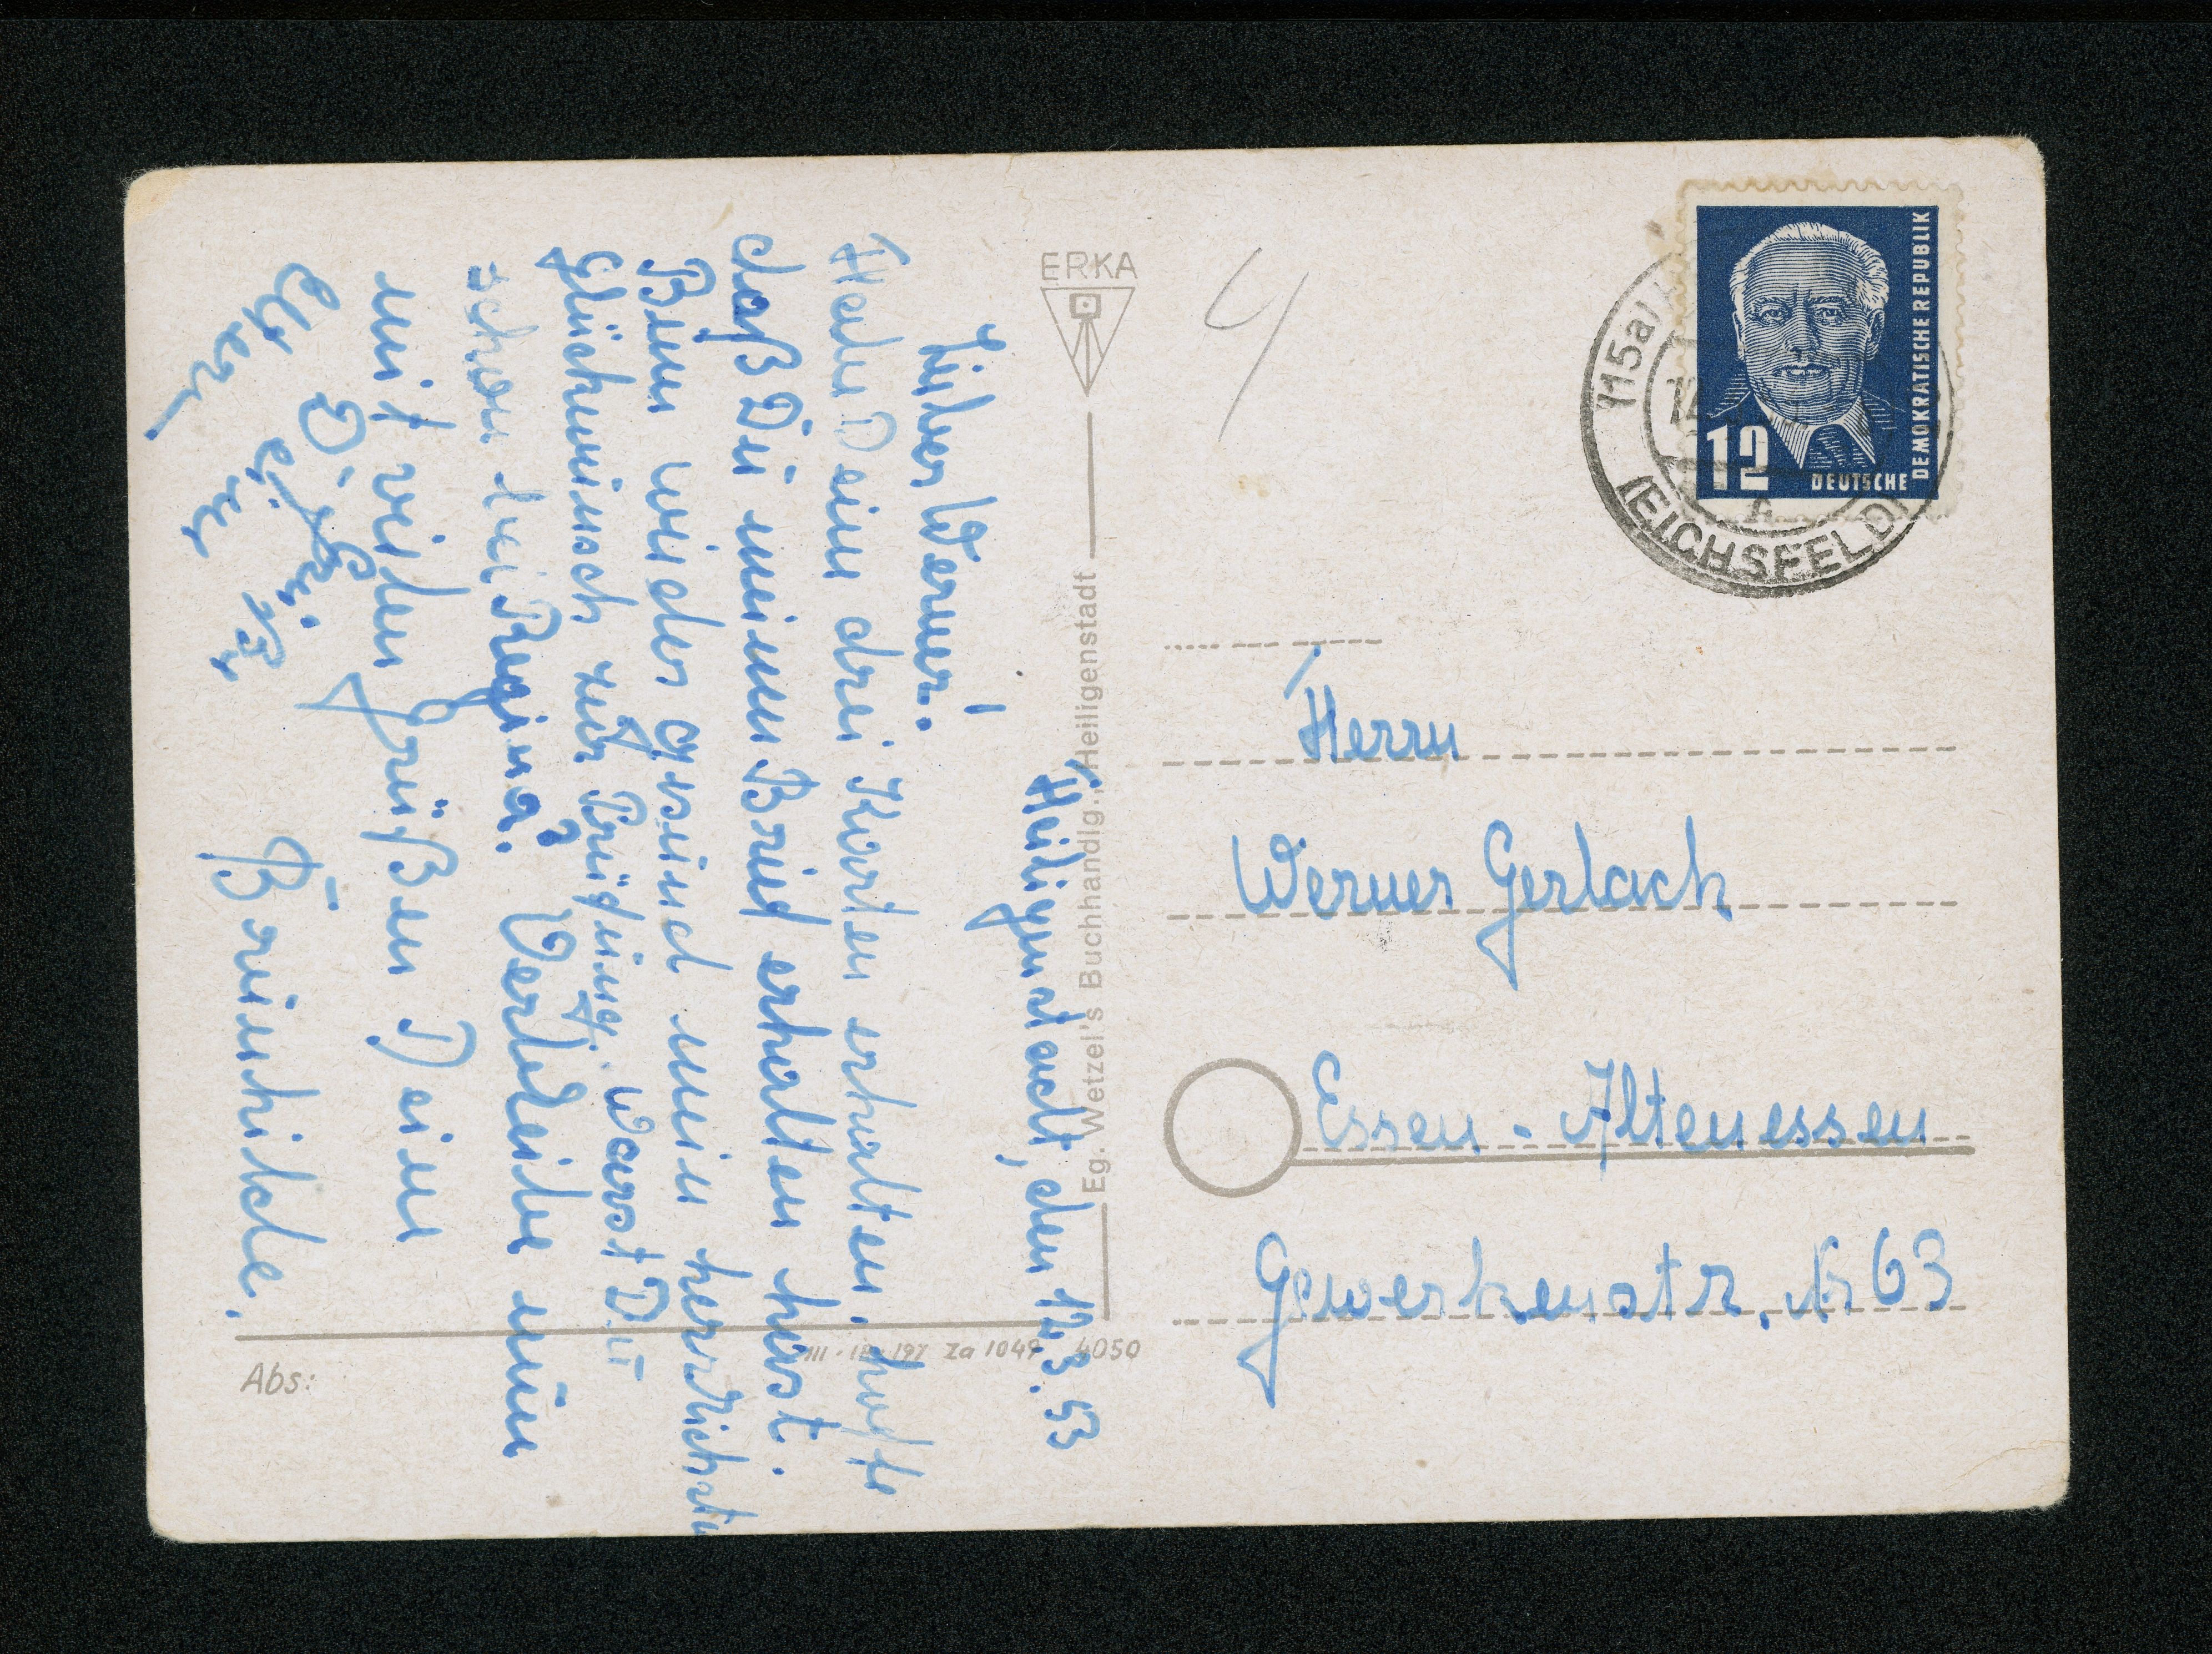 Heiligenstadt, den 12.3.53
Lieber Werner!
Habe Deine drei Karten erhalten, hoffe
daß Du meinen Brief erhalten hast.
Bein wieder gesund mein herzlichsten
Glückwunsch zur Prüfung. Warst Du
schon bei Regina? Verbleibe nun
mit vielen Grüßen Deine
ERKA
Eg. Wetzel's Buchhandlg., Heiligenstadt
III-18-197 Za 1049 4050
Abs:
12
DEUTSCHE
DEMOKRATISCHE REPUBLIK
(15a)
A
(EICHSFELD)
Herrn
Werner Gerlach
Essen-Altenessen
Gewerkenstr. Nr 63